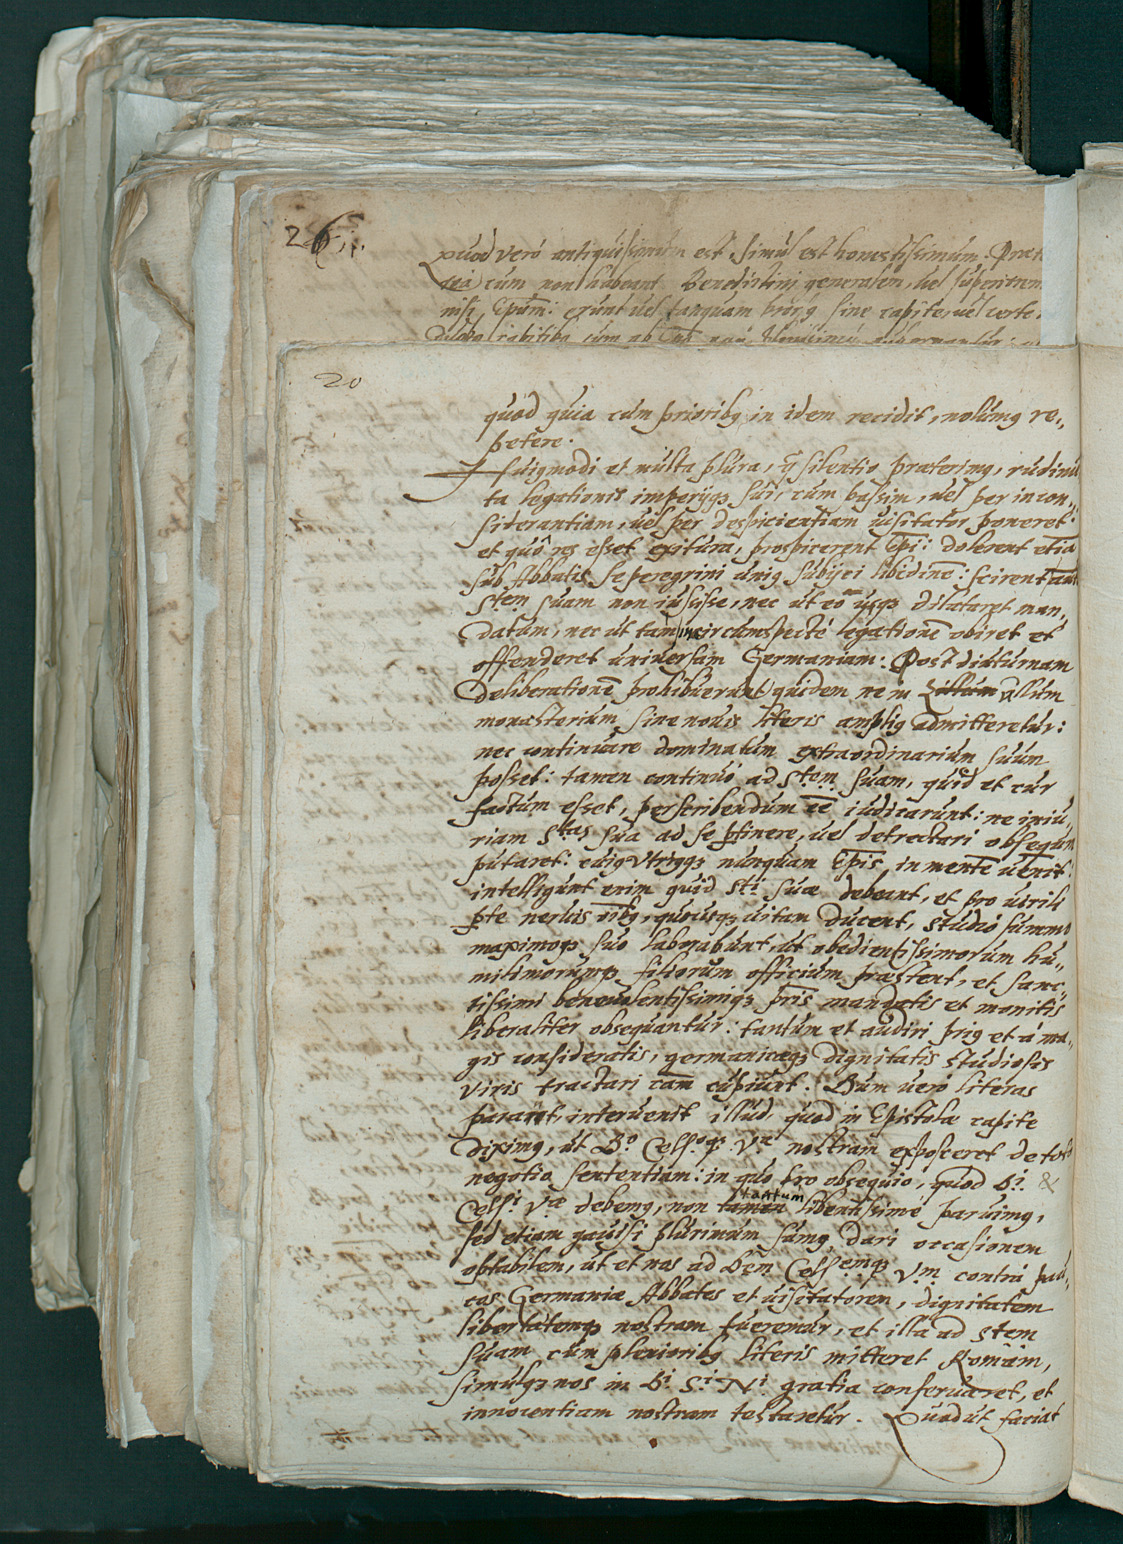 26
Quod vero antiquissimum est, simul est honestissimum. Praet
rea cum non habeant Benedictini generalem, vel superiorem
nisi Epūm: erunt vel tanquam sine capite, vel certe
cum ab
20
quod quia cum prioribꝫ in idem recidit, nolumꝰ re,,
petere.
Huiꝰmodi et multa plura, q̄ silentio praeterimꝰ, rudimē
ta legationis imperijqꝫ sui, cum passim, vel per incon,,
siderantiam, vel per despicientiam visitator poneret:
et quô res esset exitura, prospicerent Epi: dolerent etiā
sub Abbatis se peregrini uniꝰ subijci libidinē: scirent aūt
Stem suam non iussisse, nec ut eo usqꝫ dilataret man,,
datum, nec ut tam incircumspecté legationē obiret et
offenderet universam Germaniam: Post diuturnam
deliberationē prohibuerunt quidem ne in ullum
monasterium sine novis literis ampliꝰ admitteretur:
nec continuare dominatum extraordinarium suum
posset: tamen continuó ad Stem suam, quid et cur
factum esset, perscribendum eē iudicarunt: ne iniu,,
riam Stas sua ad se ꝑtinere, vel detrectari obsequium
putaret: cuiꝰ utriꝰqꝫ nunquam Epis in mentē venit:
intelligunt enim quid Sti suae debeant, et pro virili
ꝑte nervis oībꝫ, quousqꝫ vitam ducent, studio summo
maximoqꝫ suo laborabunt, ut obedientissimorum hu,,
milimorumqꝫ filiorum officium praestent, et sanc,,
tissimi benevolentissimiqꝫ pris mandatis et monitis
liberaliter obsequantur: tantum et audiri priꝰ et á ma,,
gis consideratis, germanicaeqꝫ dignitatis studiosis
viris tractari cām cupiunt. Dum veró literas
pararet, intervenit illud, quod in Epistolae capite
diximꝰ, ut Bo Celsoqꝫ Vra nostram exposceret de toto
negotio sententiam: in quo pro obsequio, quod Bi. &
Celsi. Vae debemꝰ, non tamen tantum libentissimé paruimꝰ,
sed etiam gavisi plurimum sumꝰ, dari occasionem
optabilem, ut et nos ad Bem Celsemqꝫ Vm. contra pau,,
cos Germaniae Abbates et visitatorem, dignitatem
libertatemqꝫ nostram tueremur, et illa ad Stem
suam cum plenioribꝫ literis mitteret Romam,
simulqꝫ nos in Bi Si Ni gratia conservaret, et
innocentiam nostram testaretur. Quod ut faciat